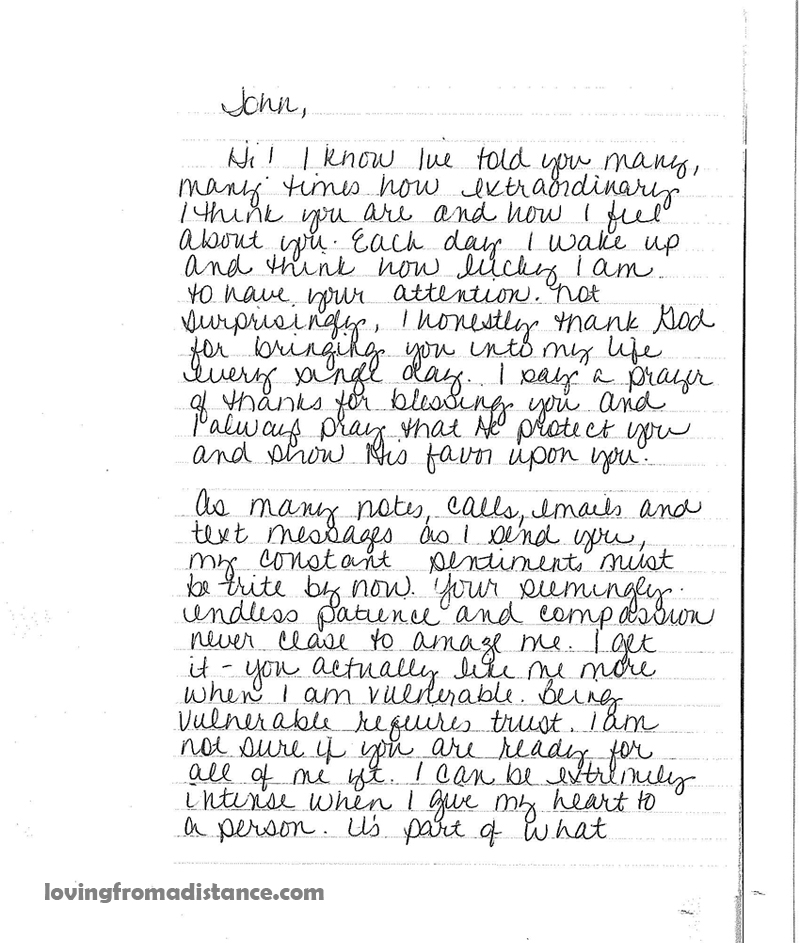 John,
Hi! I know I've told you many,
many times how extraordinary
I think you are and how I feel
about you. Each day I wake up
and think how lucky I am
to have your attention. Not
surprisingly, I honestly thank God
for bringing you into my life
every single day. I say a prayer
of thanks for blessing you and
I always pray that He protect you
and show His favor upon you.
As many notes, calls, emails and
text messages as I send you,
my constant sentiments must
be trite by now. Your seemingly
endless patience and compassion
never cease to amaze me. I get
it - you actually like me more
when I am vulnerable. Being
vulnerable requires trust. I am
not sure if you are ready for
all of me yet. I can be extremely
intense when I give my heart to
a person. It's part of what
lovingfromadistance.com